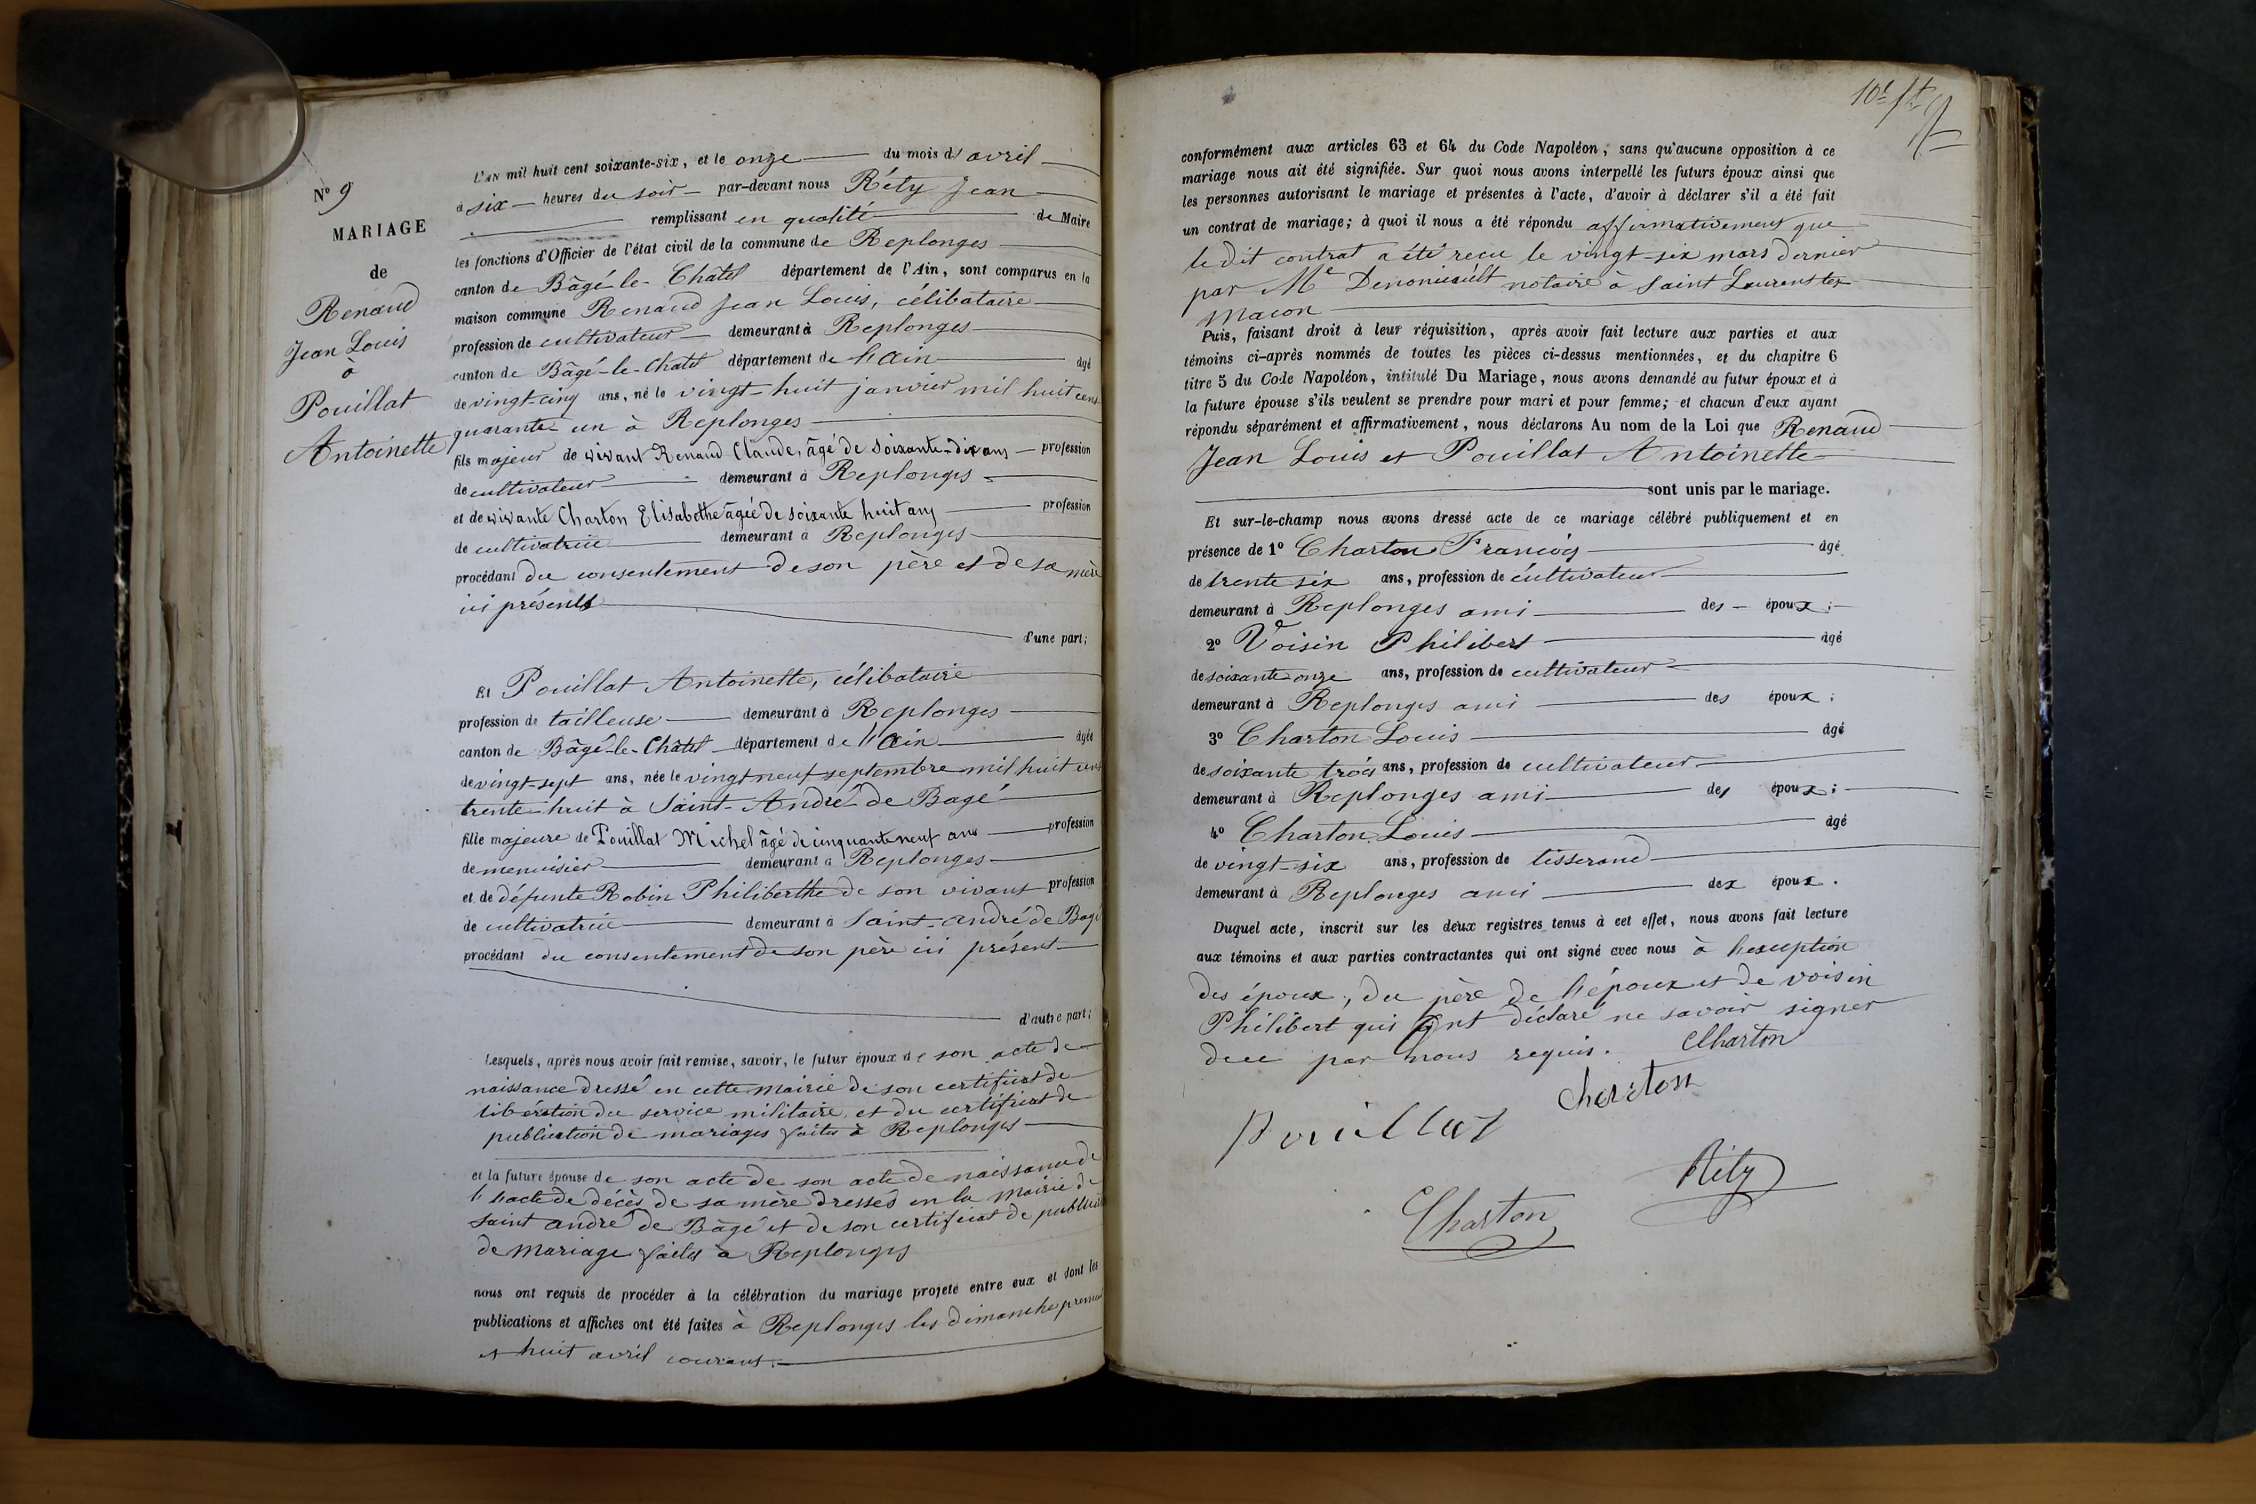 N° 9
MARIAGE
de
Renaud
Jean Louis
à
Pouillat
Antoinette
L'AN mil huit cent soixante-six, et le onze du mois d' avril
à six heures du soir par-devant nous Réty Jean
remplissant en qualité de Maire
les fonctions d'Officier de l'état civil de la commune de Replonges
canton de Bâgé-le-Châtel département de l'Ain, sont comparus en la
maison commune Renaud Jean Louis, célibataire
profession de cultivateur demeurant à Replonges
canton de Bâgé-le-Châtel département de l'Ain âgé
de vingt-cinq ans, né le vingt-huit janvier mil huit cent
quarante-un à Replonges
fils majeur de vivant Renaud Claude, âgé de soixante-dix ans profession
de cultivateur demeurant à Replonges
et de vivante Charton Elisabethe âgée de soixante huit ans profession
de cultivatrice demeurant à Replonges
procédant du consentement de son père et de sa mère
ici présents
d'une part;
Et Pouillat Antoinette, célibataire
profession de tailleuse demeurant à Replonges
canton de Bâgé-le-Châtel département de l'Ain âgée
de vingt-sept ans, née le vingt neuf septembre mil huit cent
trente-huit à Saint-André-de Bagé
fille majeure de Pouillat Michel âgé de cinquante neuf ans profession
de menuisier demeurant à Replonges
et de défunte Robin Philiberthe de son vivant profession
de cultivatrice demeurant à Saint-André de Bagé
procédant du consentement de son père ici présent
d'autre part;
Lesquels, après nous avoir fait remise, savoir, le futur époux de son acte de
naissance dressé en cette mairie de son certificat de
libération du service militaire et du certificat de
publication de mariages faites à Replonges
et la future épouse de son acte de son acte de naissance de
l'acte de décès de sa mère dressés en la mairie de
Saint André de Bâgé et de son certificat de
de mariage faites à Replonges
nous ont requis de procéder à la célébration du mariage projeté entre eux et dont les
publications et affiches ont été faites à Replonges les dimanches premier
et huit avril courant.
conformément aux articles 63 et 64 du Code Napoléon, sans qu'aucune opposition à ce
mariage nous ait été signifiée. Sur quoi nous avons interpellé les futurs époux ainsi que
les personnes autorisant le mariage et présentes à l'acte, d'avoir à déclarer s'il a été fait
un contrat de mariage; à quoi il nous a été répondu affirmativement que
le dit contrat a été reçu le vingt-six mars dernier
par Me notaire à Saint Laurent les
Macon
Puis, faisant droit à leur réquisition, après avoir fait lecture aux parties et aux
témoins ci-après nommés de toutes les pièces ci-dessus mentionnées, et du chapitre 6
titre 5 du Code Napoléon, intitulé Du Mariage, nous avons demandé au futur époux et à
la future épouse s'ils veulent se prendre pour mari et pour femme; et chacun d'eux ayant
répondu séparément et affirmativement, nous déclarons Au nom de la Loi que Renaud
Jean Louis et Pouillat Antoinette
sont unis par le mariage.
Et sur-le-champ nous avons dressé acte de ce mariage célébré publiquement et en
présence de 1° Charton François âgé
de trente six ans, profession de cultivateur
demeurant à Replonges ami des époux;
2° Voisin Philibert âgé
de soixante onze ans, profession de cultivateur
demeurant à Replonges ami des époux;
3° Charton Louis âgé
de soixante trois ans, profession de cultivateur
demeurant à Replonges ami des époux;
4° Charton Louis âgé
de vingt-six ans, profession de tisserand
demeurant à Replonges ami des époux.
Duquel acte, inscrit sur les deux registres tenus à cet effet, nous avons fait lecture
aux témoins et aux parties contractantes qui ont signé avec nous à l'exception
des époux, du père de l'époux et de voisin
Philibert qui ont déclaré ne savoir signer
de ce par nous requis. Charton
Charton
Pouillat
Réty
Charton